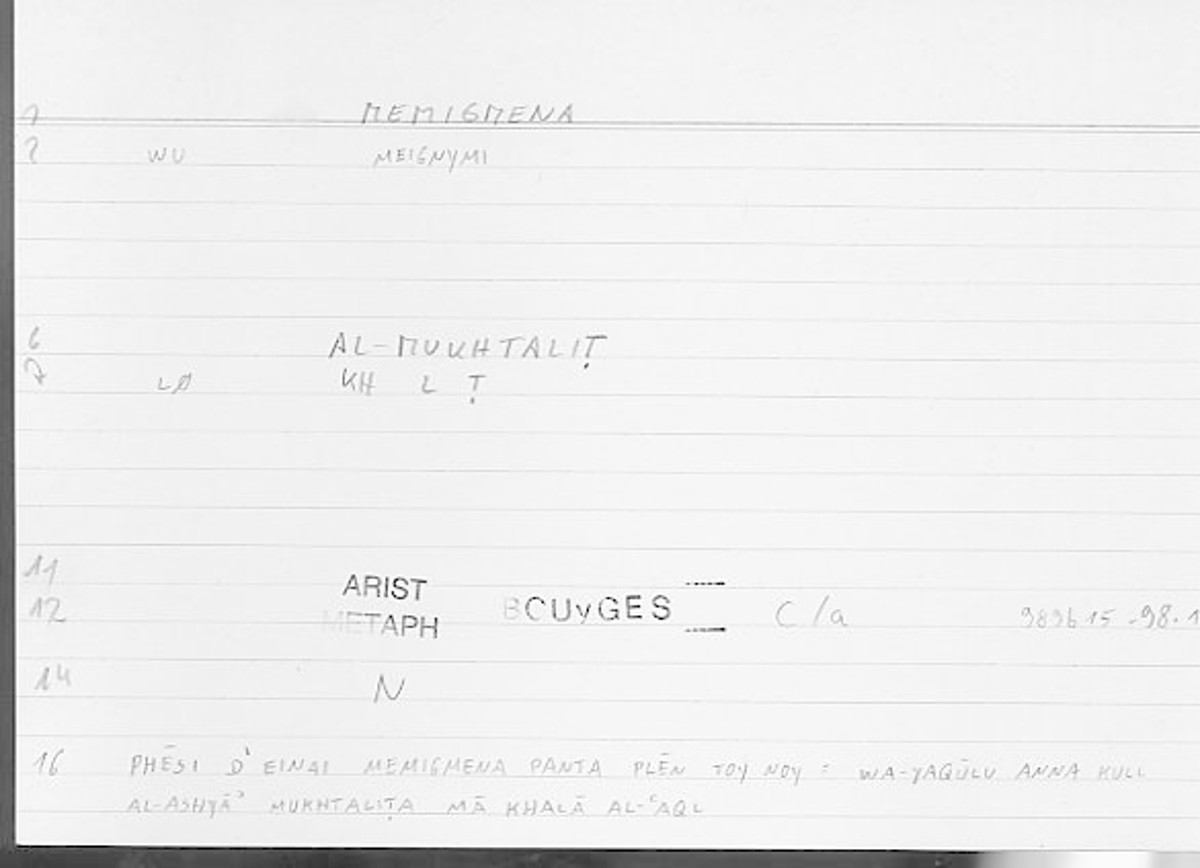 1 MEMIGMENA
2 WU MEIGNYMI
6 AL-MUKHTALIṬ
7 LØ KH L Ṭ
11
ARIST
12 METAPH BCUyGES C/a 989b15 -98.1
14 N
16 PHĒSI D' EINAI MEMIGMENA PANTA PLĒN TOY NOY : WA-YAQŪLU ANNA KULL
AL-ASHYĀʾ MUKHTALIṬA MĀ KHALĀ AL-ʿAQL